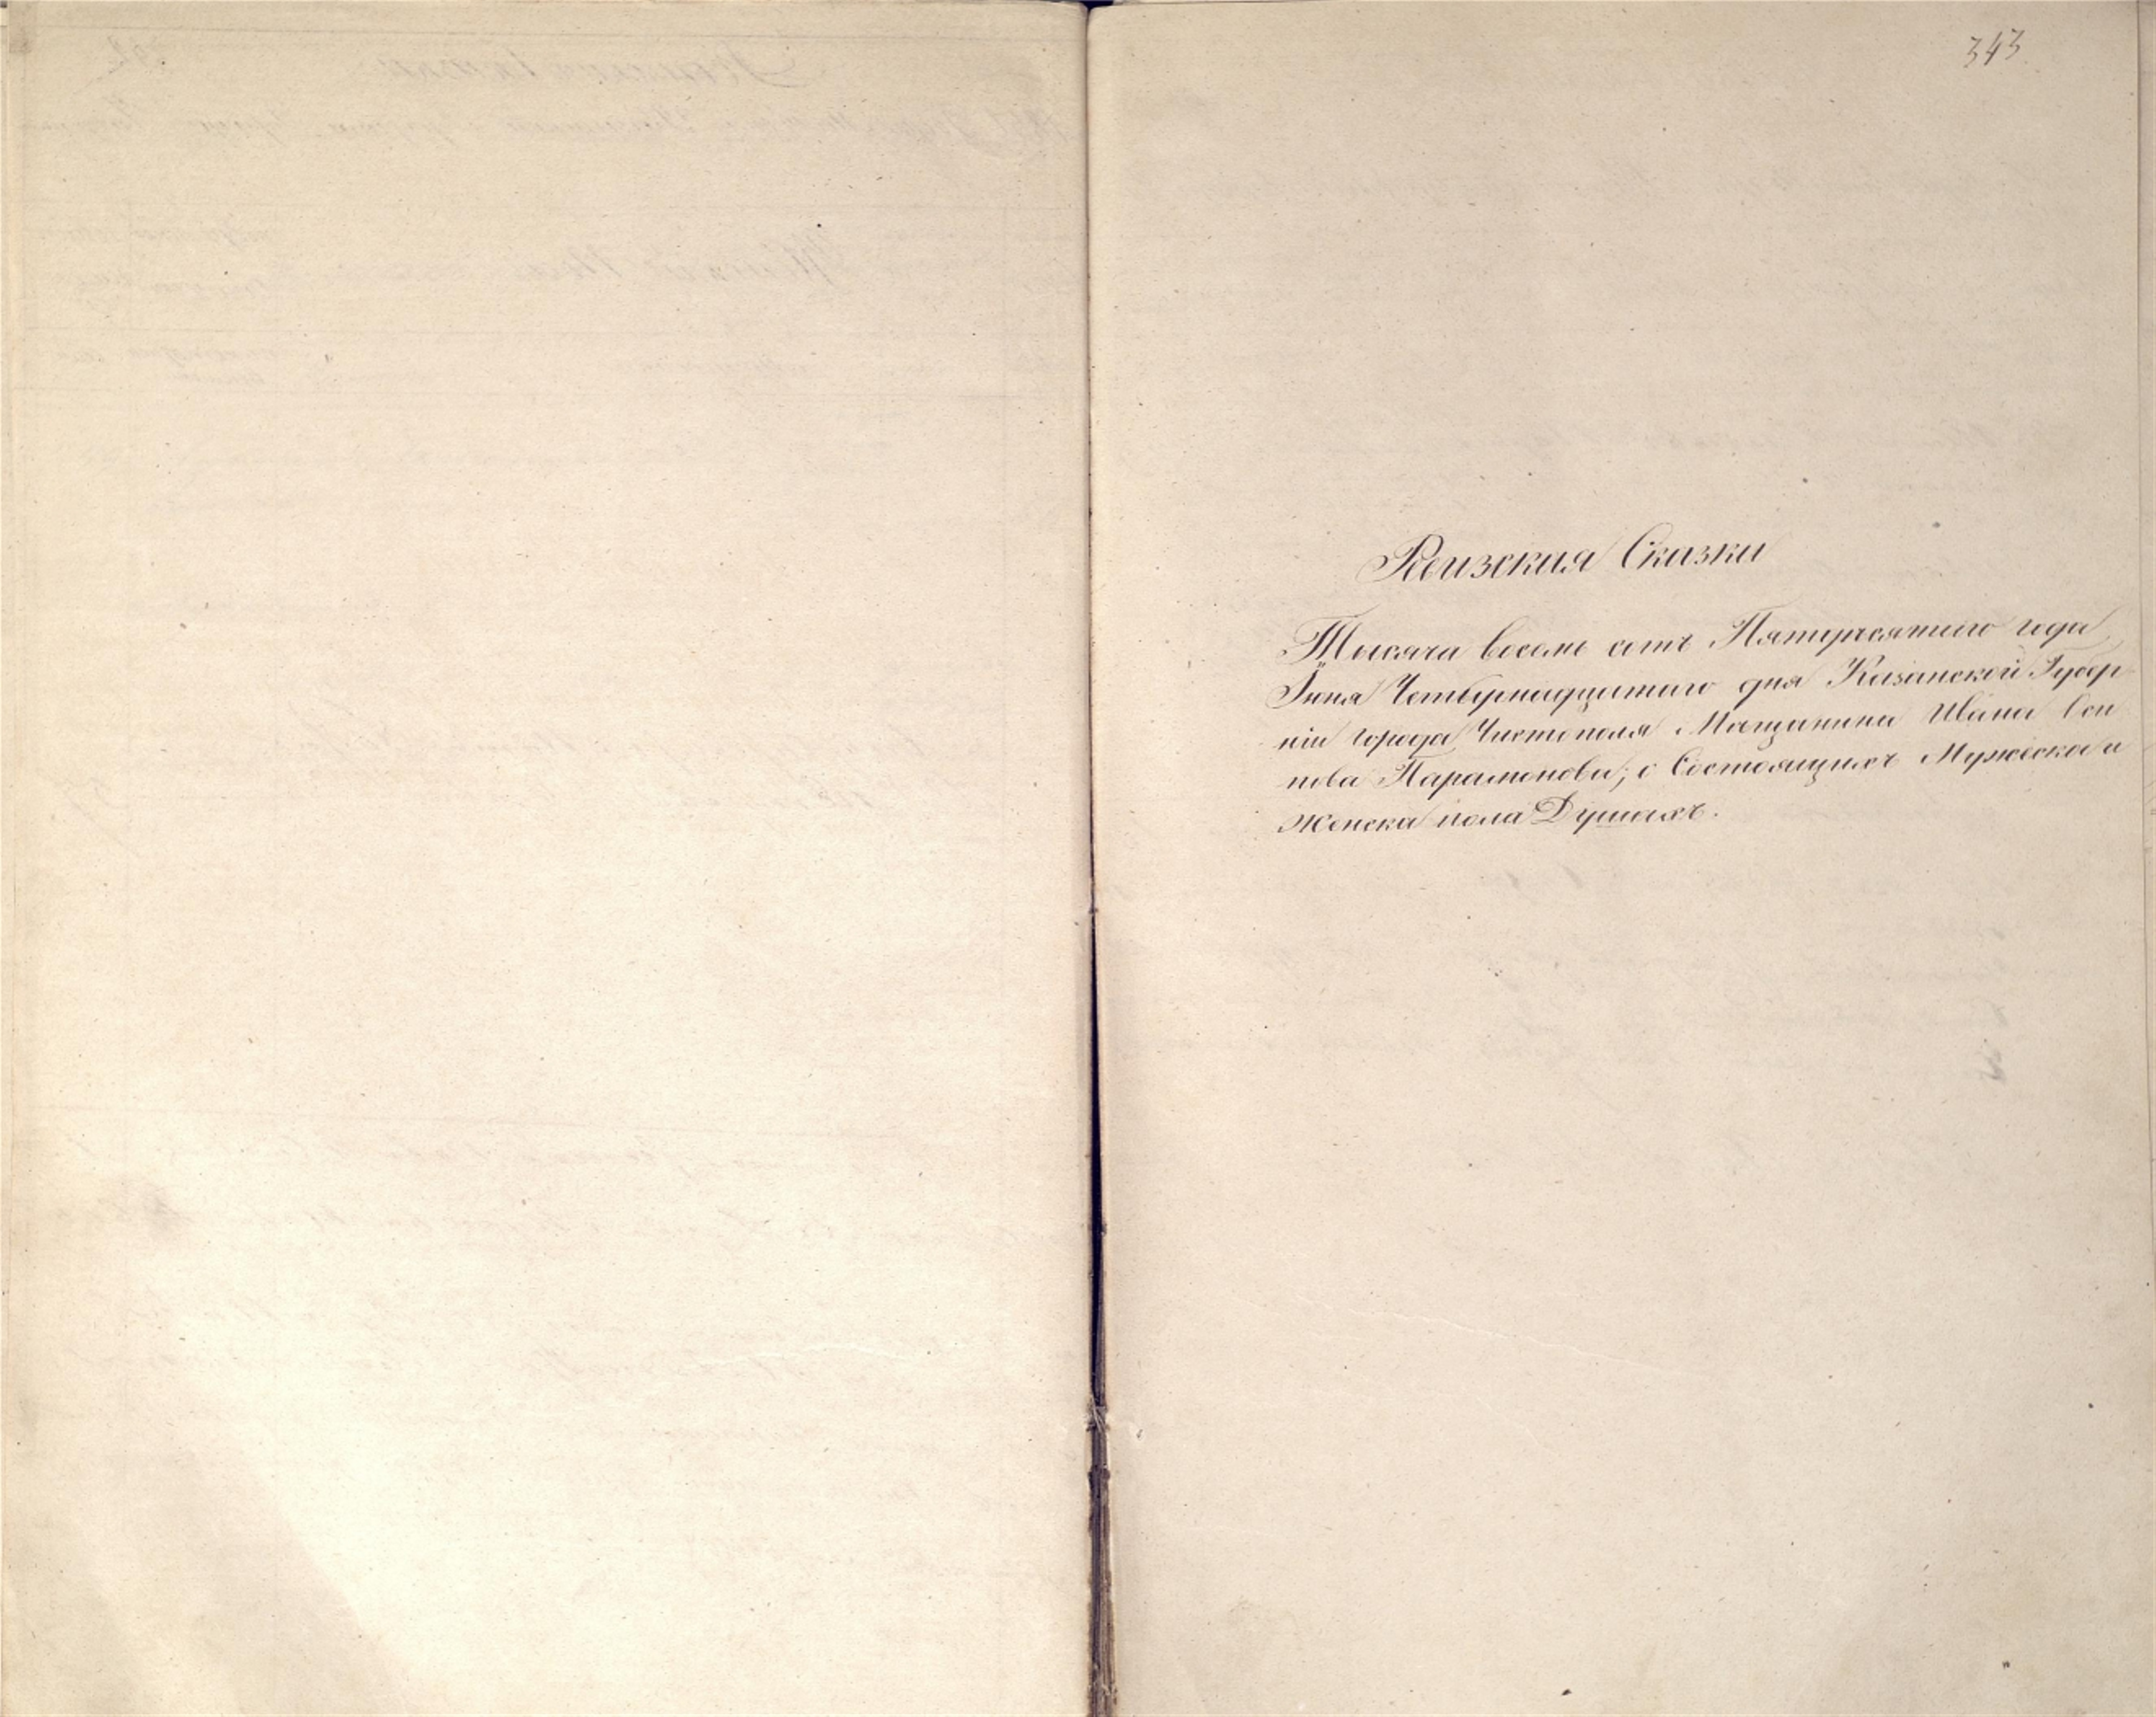 343.
Ревизская Сказки
Тысяча восемь сотъ Пятидесятаго года
Іюня Четырнадцатаго дня Казанской Губер
ніи города Чистополя Мащанина Ивана
нова Парамонова; о Состоящихъ Мужеска и
Женска пола Душахъ.